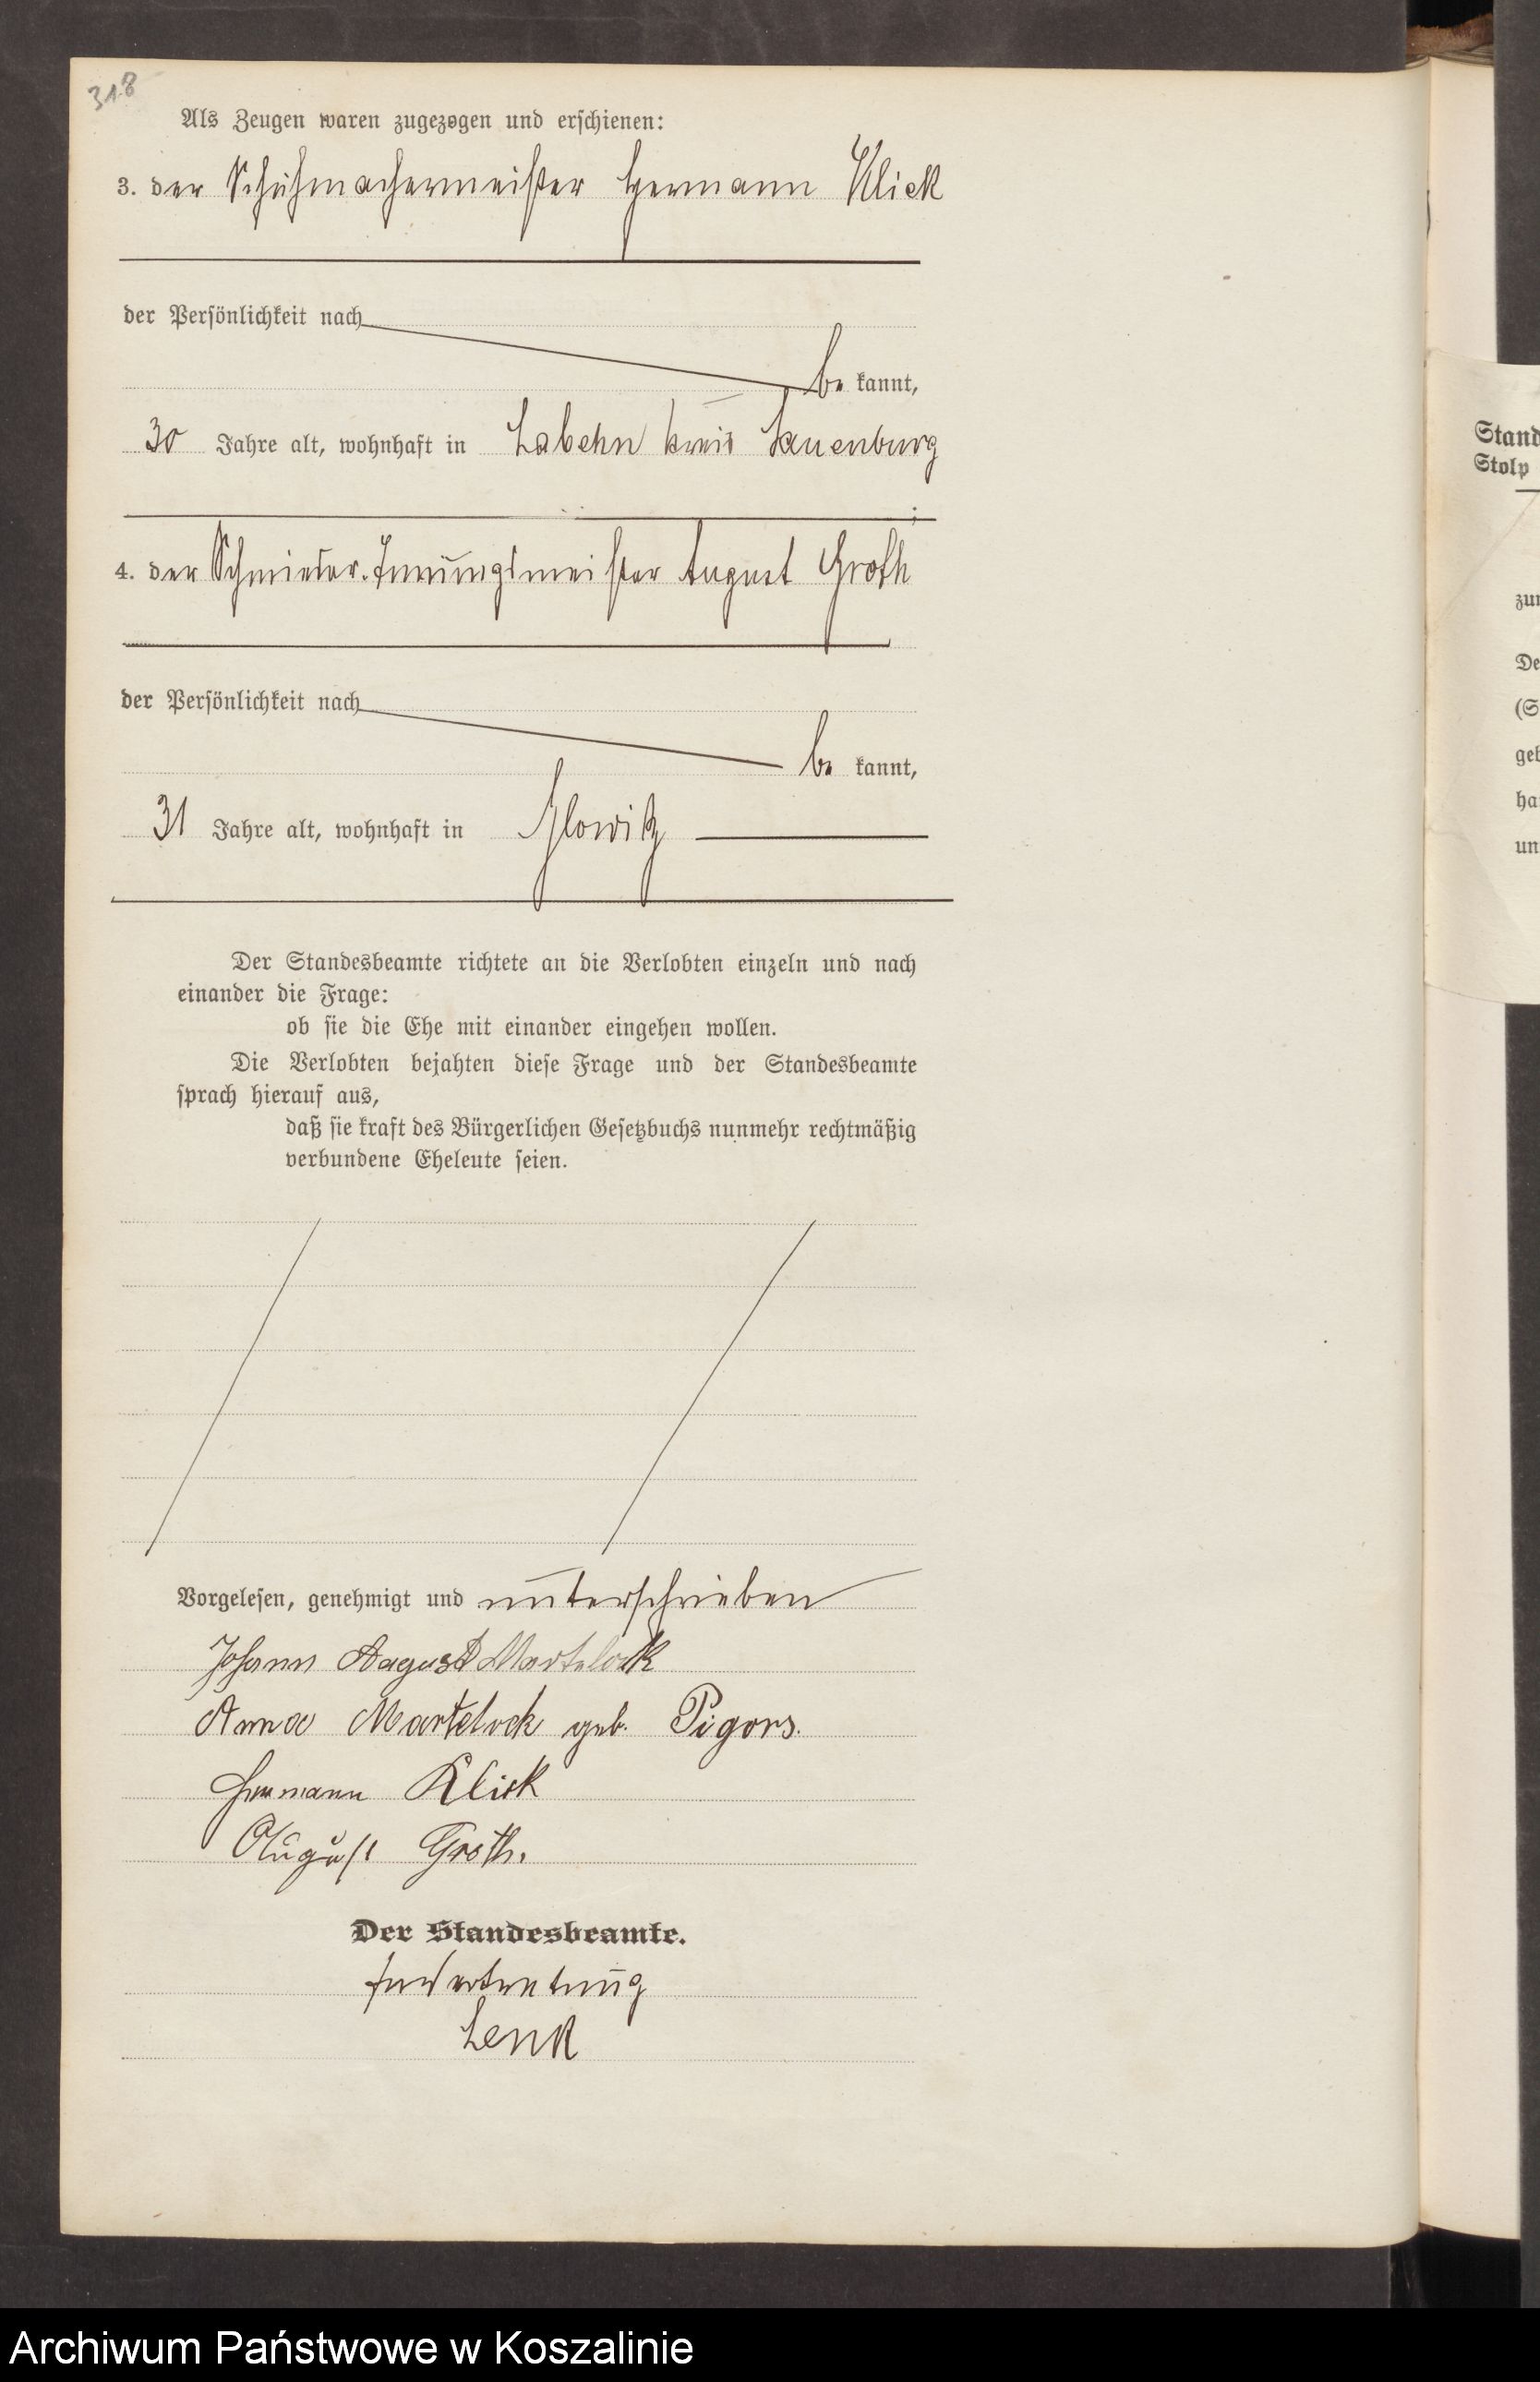 318
Als Zeugen waren zugezogen und erschienen:
3. der Schuhmachermeister Hermann Klick
der Persönlichkeit nach
be kannt,
30 Jahre alt, wohnhaft in Labehn Kreis Lauenburg
;
4. der Schmiede-Innungsmeister August Groth
der Persönlichkeit nach
be kannt,
31 Jahre alt, wohnhaft in Glowitz
Der Standesbeamte richtete an die Verlobten einzeln und nach
einander die Frage:
ob sie die Ehe mit einander eingehen wollen.
Die Verlobten bejahten diese Frage und der Standesbeamte
sprach hierauf aus,
daß sie kraft des Bürgerlichen Gesetzbuchs nunmehr rechtmäßig
verbundene Eheleute seien.
Vorgelesen, genehmigt und unterschrieben
Johann August Martelock
Anna Martelock geb. Pigors.
Hermann Klick
August Groth.
Der Standesbeamte.
In Vertretung
Lenk
Stand
Stolp
zur
De
(S
geb
ha
un
Archiwum Państwowe w Koszalinie